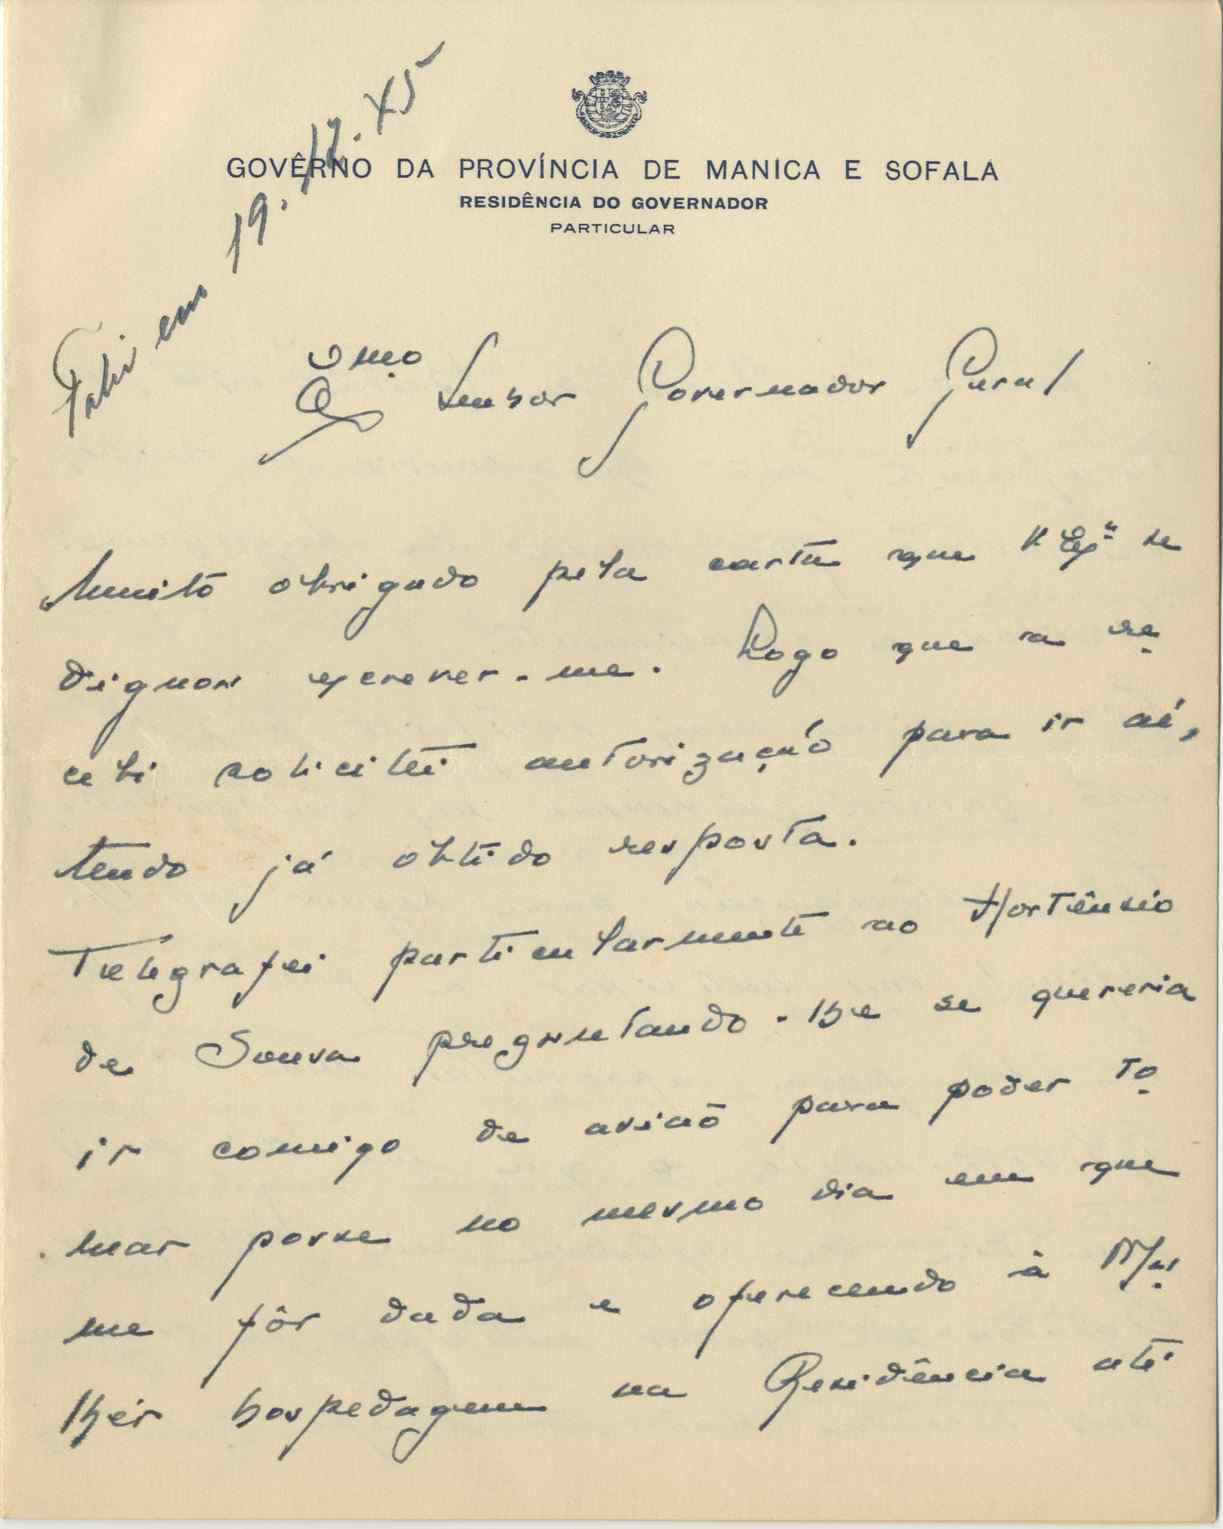 GOVÊRNO DA PROVÍNCIA DE MANICA E SOFALA
RESIDÊNCIA DO GOVERNADOR
PARTICULAR
em 19.12.45
Exmo Senhor Governador Geral
Muito obrigado pela carta que V. Exª se
dignou escrever-me. Logo que a re-
cebi solicitei autorização para ir aí,
tendo já obtido resposta.
Telegrafei particularmente ao Hortênsio
de Sousa preguntando-lhe se quereria
ir comigo de avião para poder to-
mar posse no mesmo dia em que
me fôr dada e oferecendo à Mu-
lhér hospedagem na Residência até